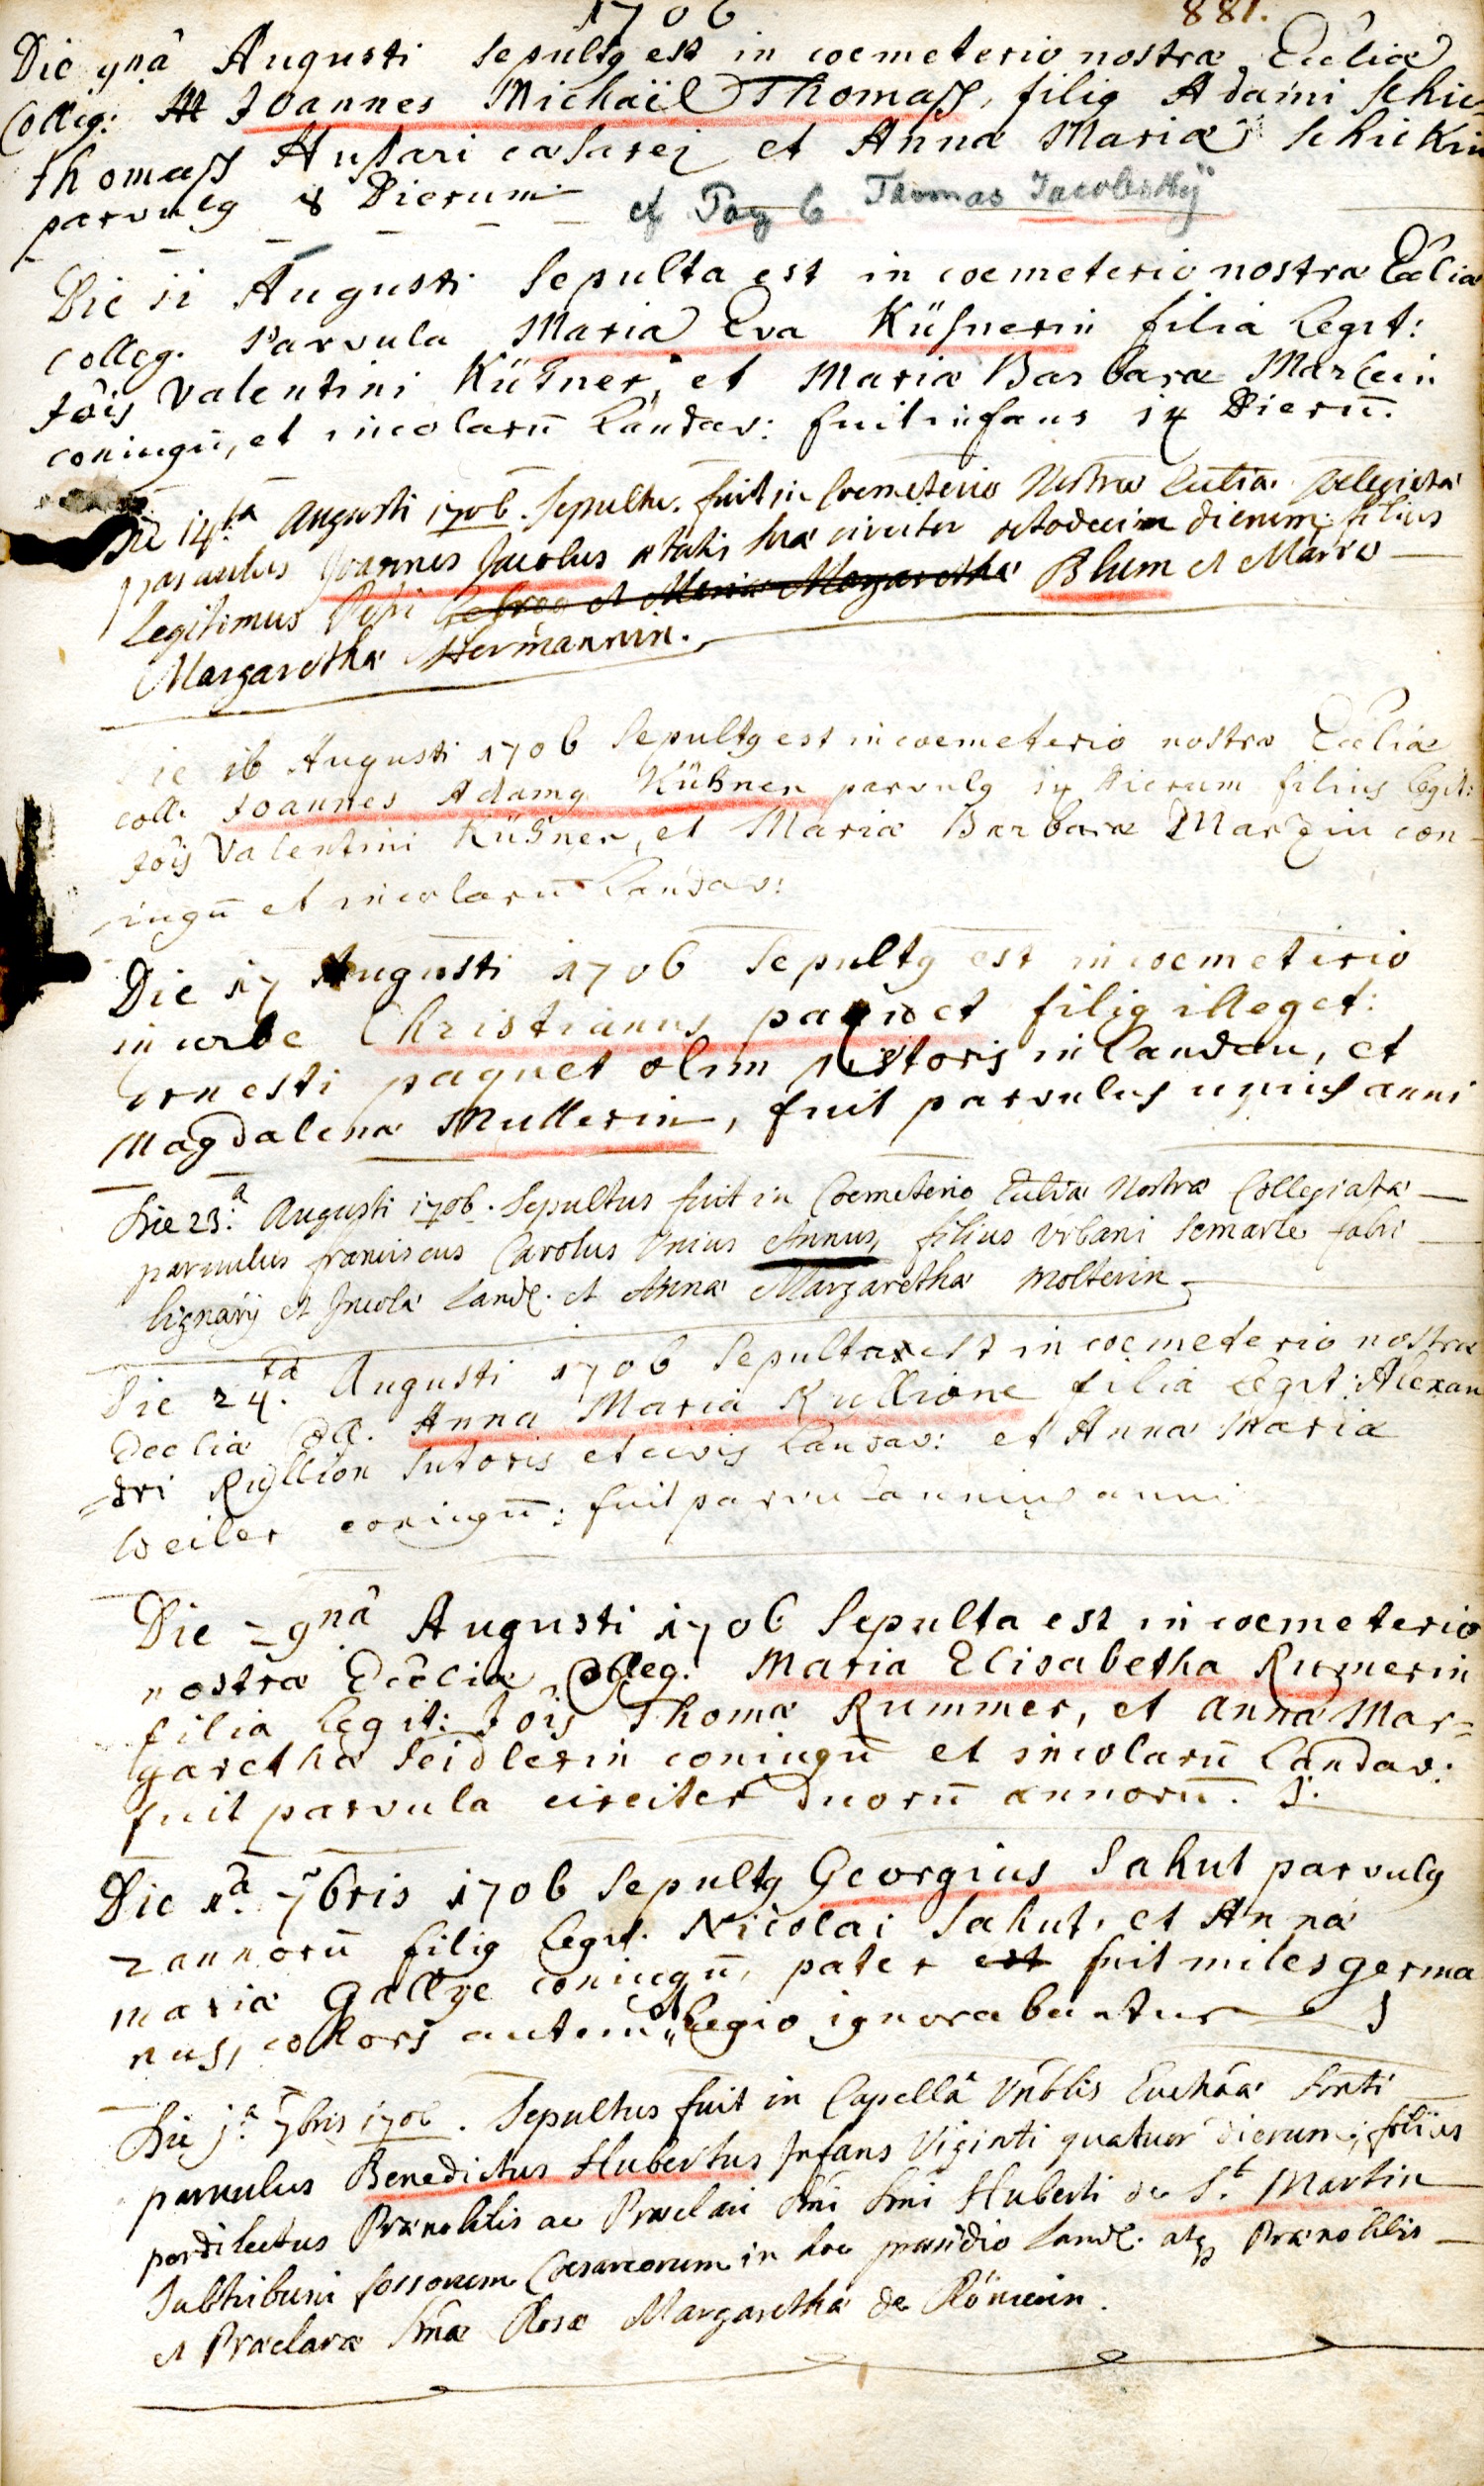 1706
881.
Die 9nâ Augusti sepultq est in coemeterio nostræ Ecêliæ
Colleg: Joannes Michaël Thomass, filiq Adami Schic
Thomass Hussari cæsarei et Anna Maria Schickin
parvulq 8 Dierum
cf Pag 6 Thomas Jacobskÿ
Die 11 Augusti Sepulta est in coemeterio nostræ Ecêliæ
colleg. Parvula Maria Eva Küsnerin filia Legit:
Jôis Valentini Küsner, et Mariæ Barbaræ
coniugū, et incolarū Landav: fuit infans 14 Dierū.
Die 14ta Augusti 1706. Sepultus fuit in Coemeterio Nostræ Ecclia Collegiatæ
parvulus Joannes Jacobus ætatis suæ circiter octodecim dierum, filius
Legitimus Petri et Maria Margaretha Blum et Maria
Margaretha Hermannin.
Die 16 Augusti 1706 Sepultq est in coemeterio nostræ Ecêliæ
coll. Joannes Adamq Küsner parvulq 14 Dierum filius legit:
Jôis Valentini Küsner, et Mariæ Barbaræ Marzin con-
iugū et incolarū Landav:
Die 17 Augusti 1706 Sepultq est in coemeterio
in urbe Christianus paquet filiq illeget:
ernesti paquet olim pistoris in Landau, et
Magdalena Mullerin, fuit parvulus unius anni
Die 23.a Augusti 1706. Sepultus fuit in Coemeterio Ecclia Nostræ Collegiatæ
parvulus franciscus Carolus Unius Annus, filius Urbani Semarle fabri
lignarÿ et Incolæ Land. et Anna Margaretha Molterin
Die 24.ta Augusti 1706 Sepulta est in coemeterio nostræ
Ecclia Coll. Anna Maria Kullione filia Legit: Alexan
=dri Kullion Sutoris et civis Landav: et Anna Maria
Weiler coniugū; fuit parvula unius anni
Die 29nâ Augusti 1706 Sepulta est in coemeterio
nostræ Ecêliæ Colleg. Maria Elisabetha Rum̄erin
filia Legit: Jôis Thomæ Rummer, et Anna Mar=
garetha Seidlerin coniugū et incolarū Landav:
fuit parvula circiter duorū annorū.
Die 1a 7bris 1706 Sepultq Georgius Sahut parvulq
2 annorū filiq legit. Nicolai Sahut, et Anna
maria Gallye coniugū, pater est fuit miles germa
nus, cohors autem et Legio ignorabantur
Die 1.a 7bris 1706. Sepultus fuit in Capellâ Vnblis Euchāæ
parvulus Benedictus Hubertus Infans Viginti quatuor dierum, filius
perdilectus Prænobilis ac Præclari Dnî Dnî Huberti de St. Martin
Subtribuni fossorum Cæsareorum in hoc præsidio Land. atq Prænobilis
et Præclaræ Dnæ Rosæ Margaretha de